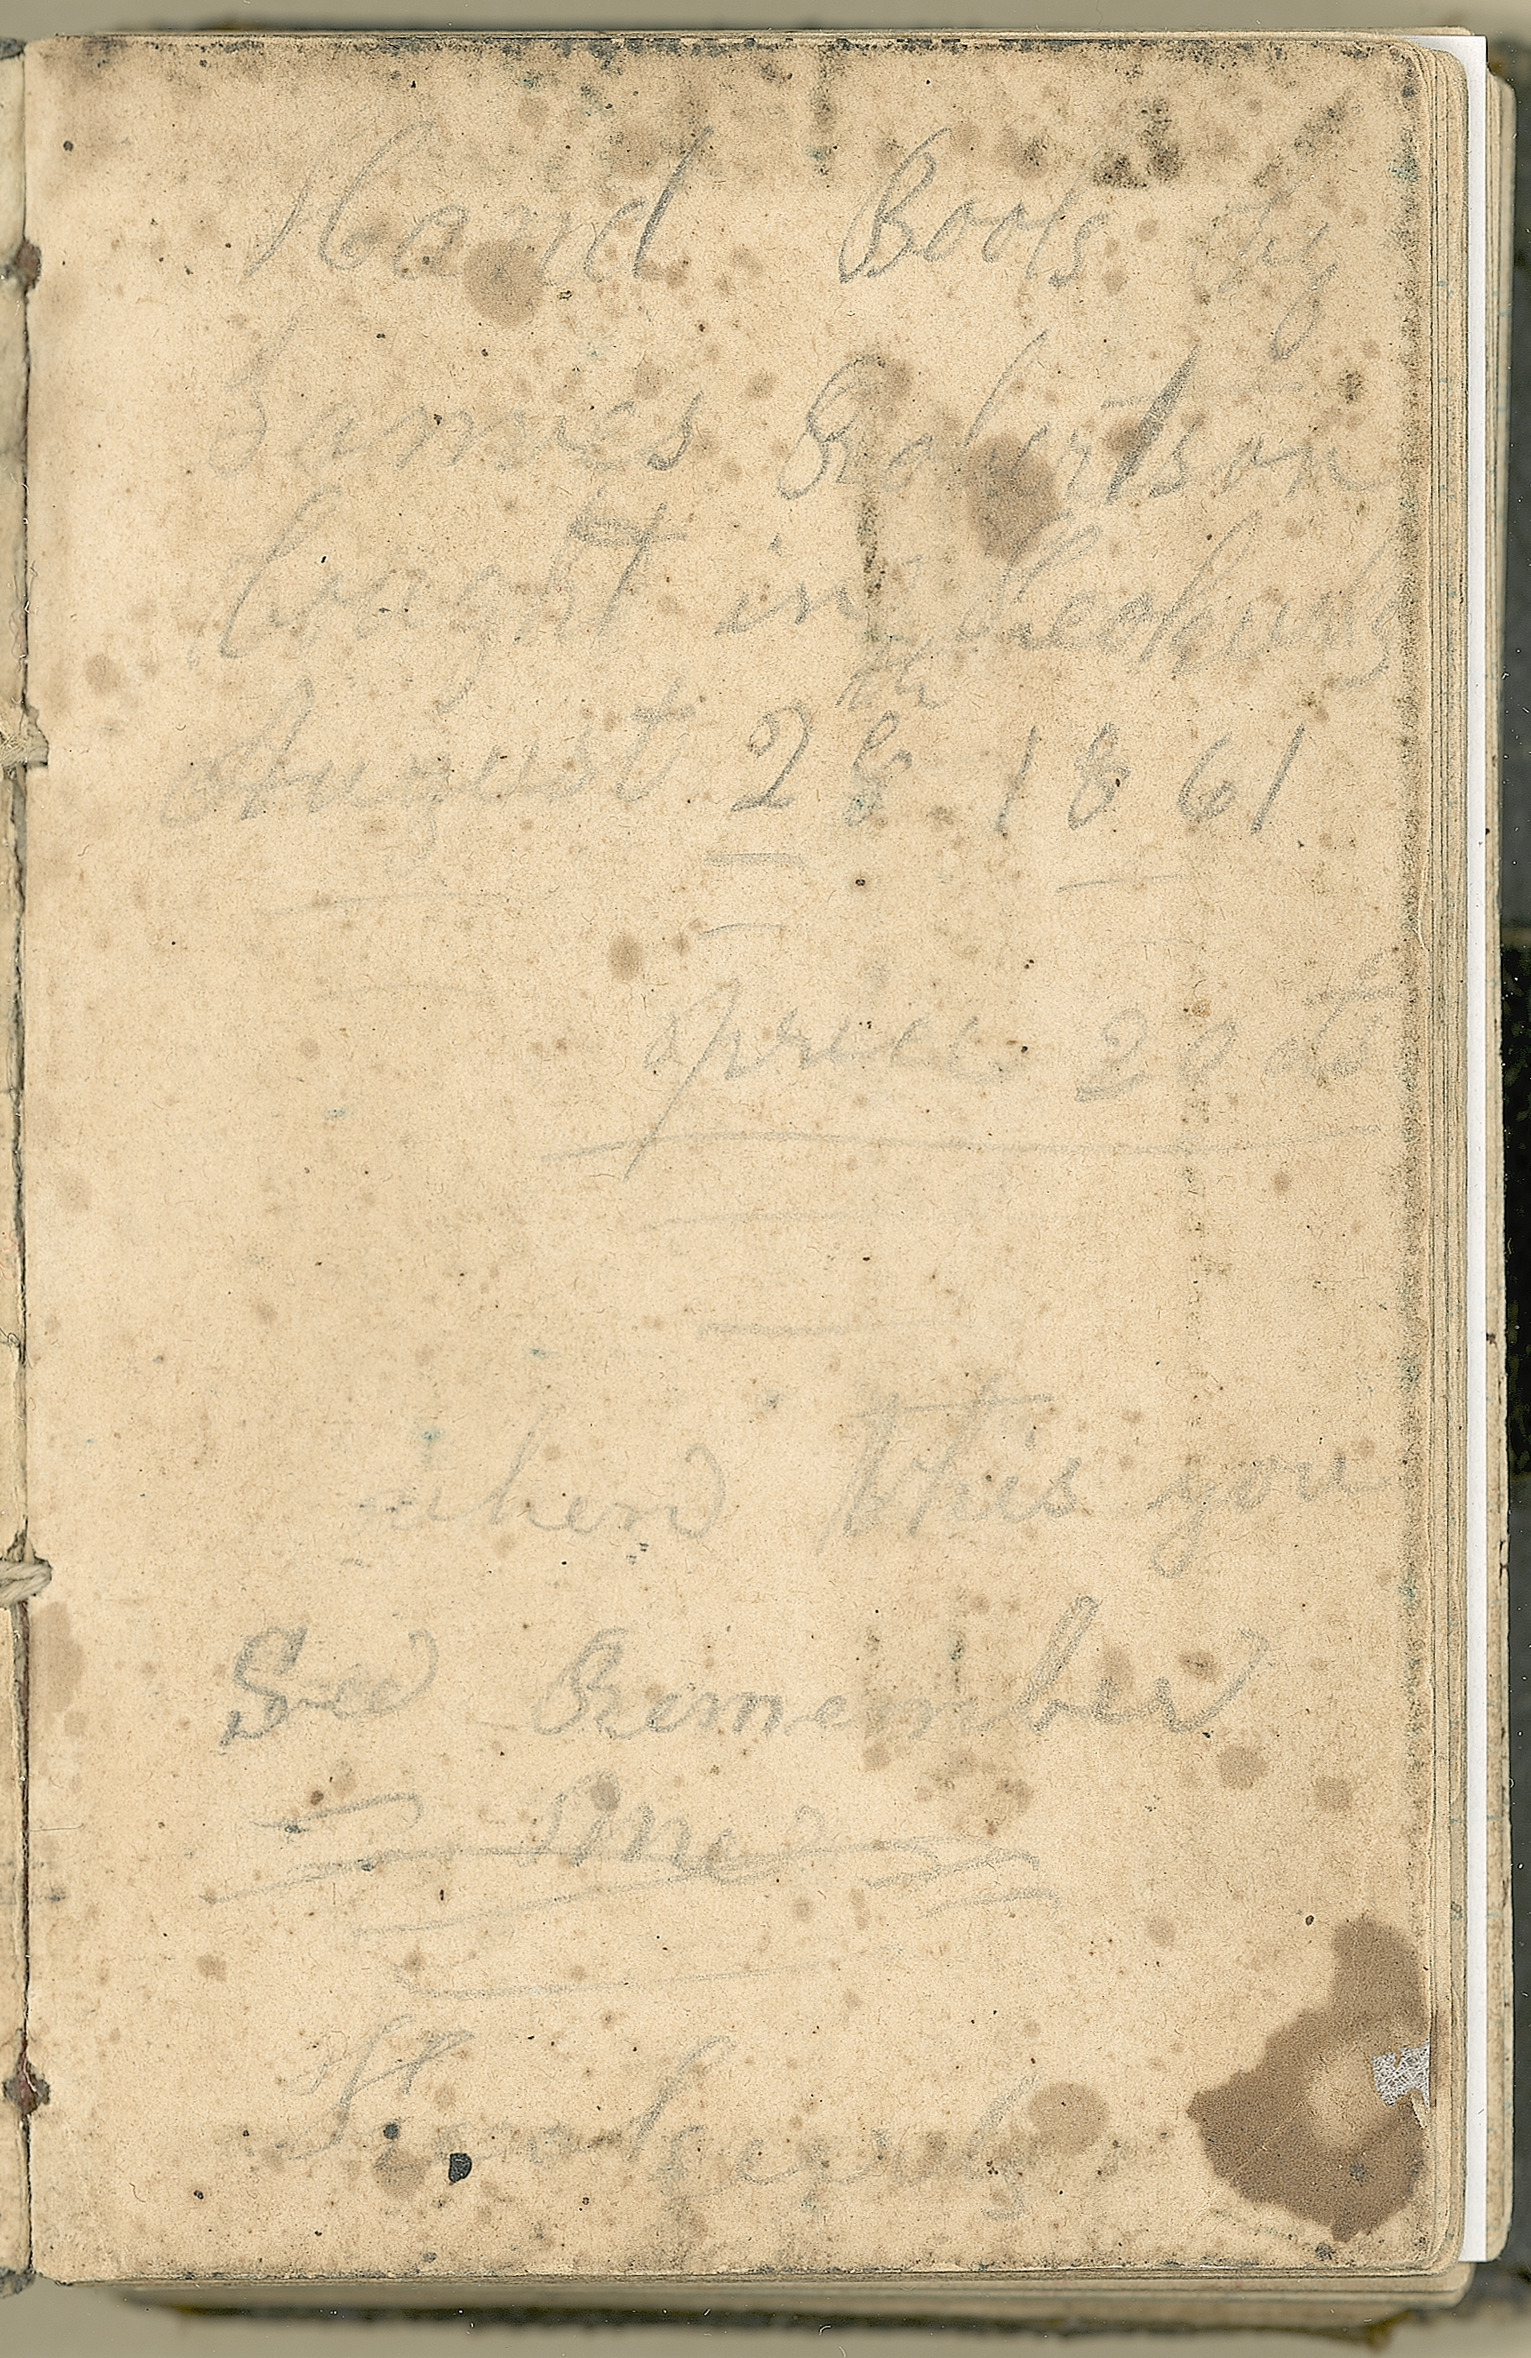 Hand Book by
James Robertson
Baught in Keokuk
August 28th 1861
price 20 cts
when this you
See Remember
me
Keokuk